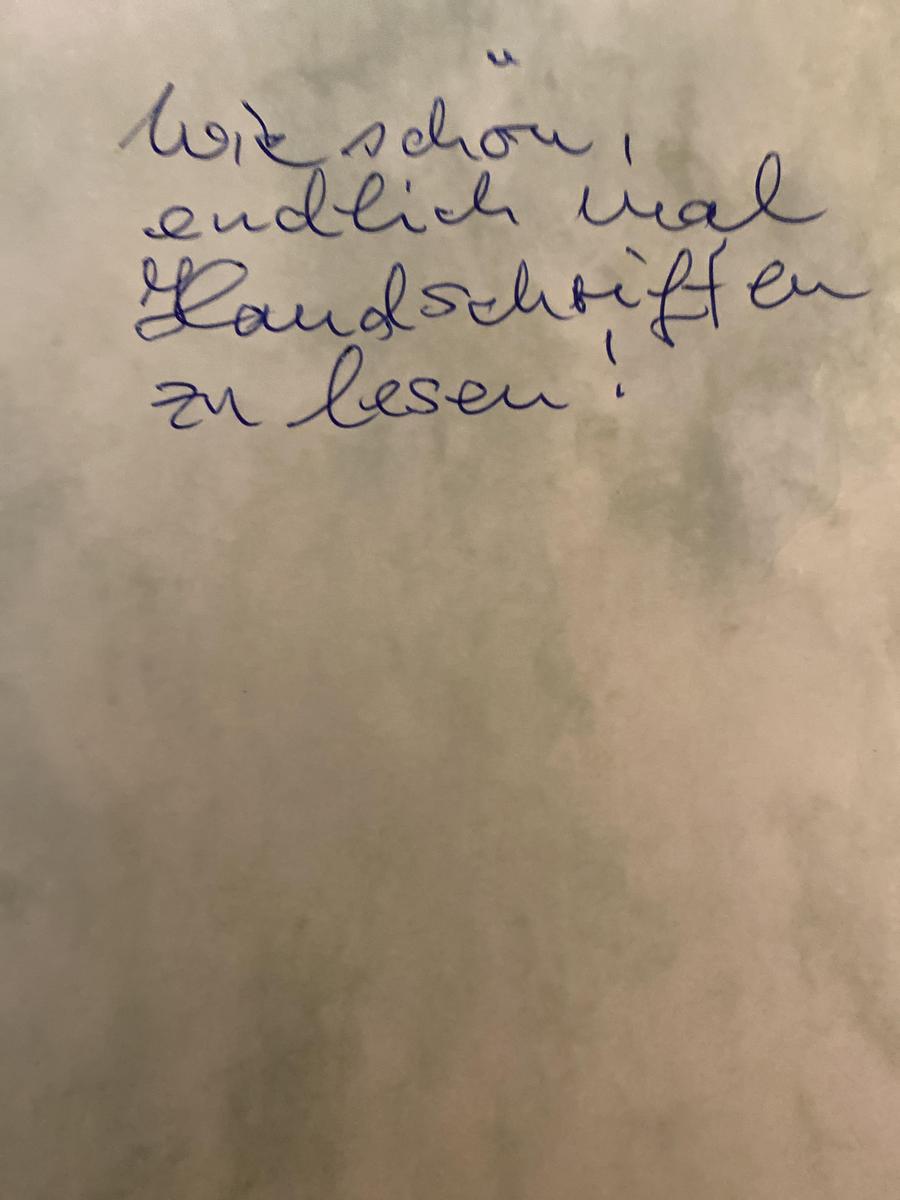 Wie schön,
endlich mal
Handschriften
zu lesen!